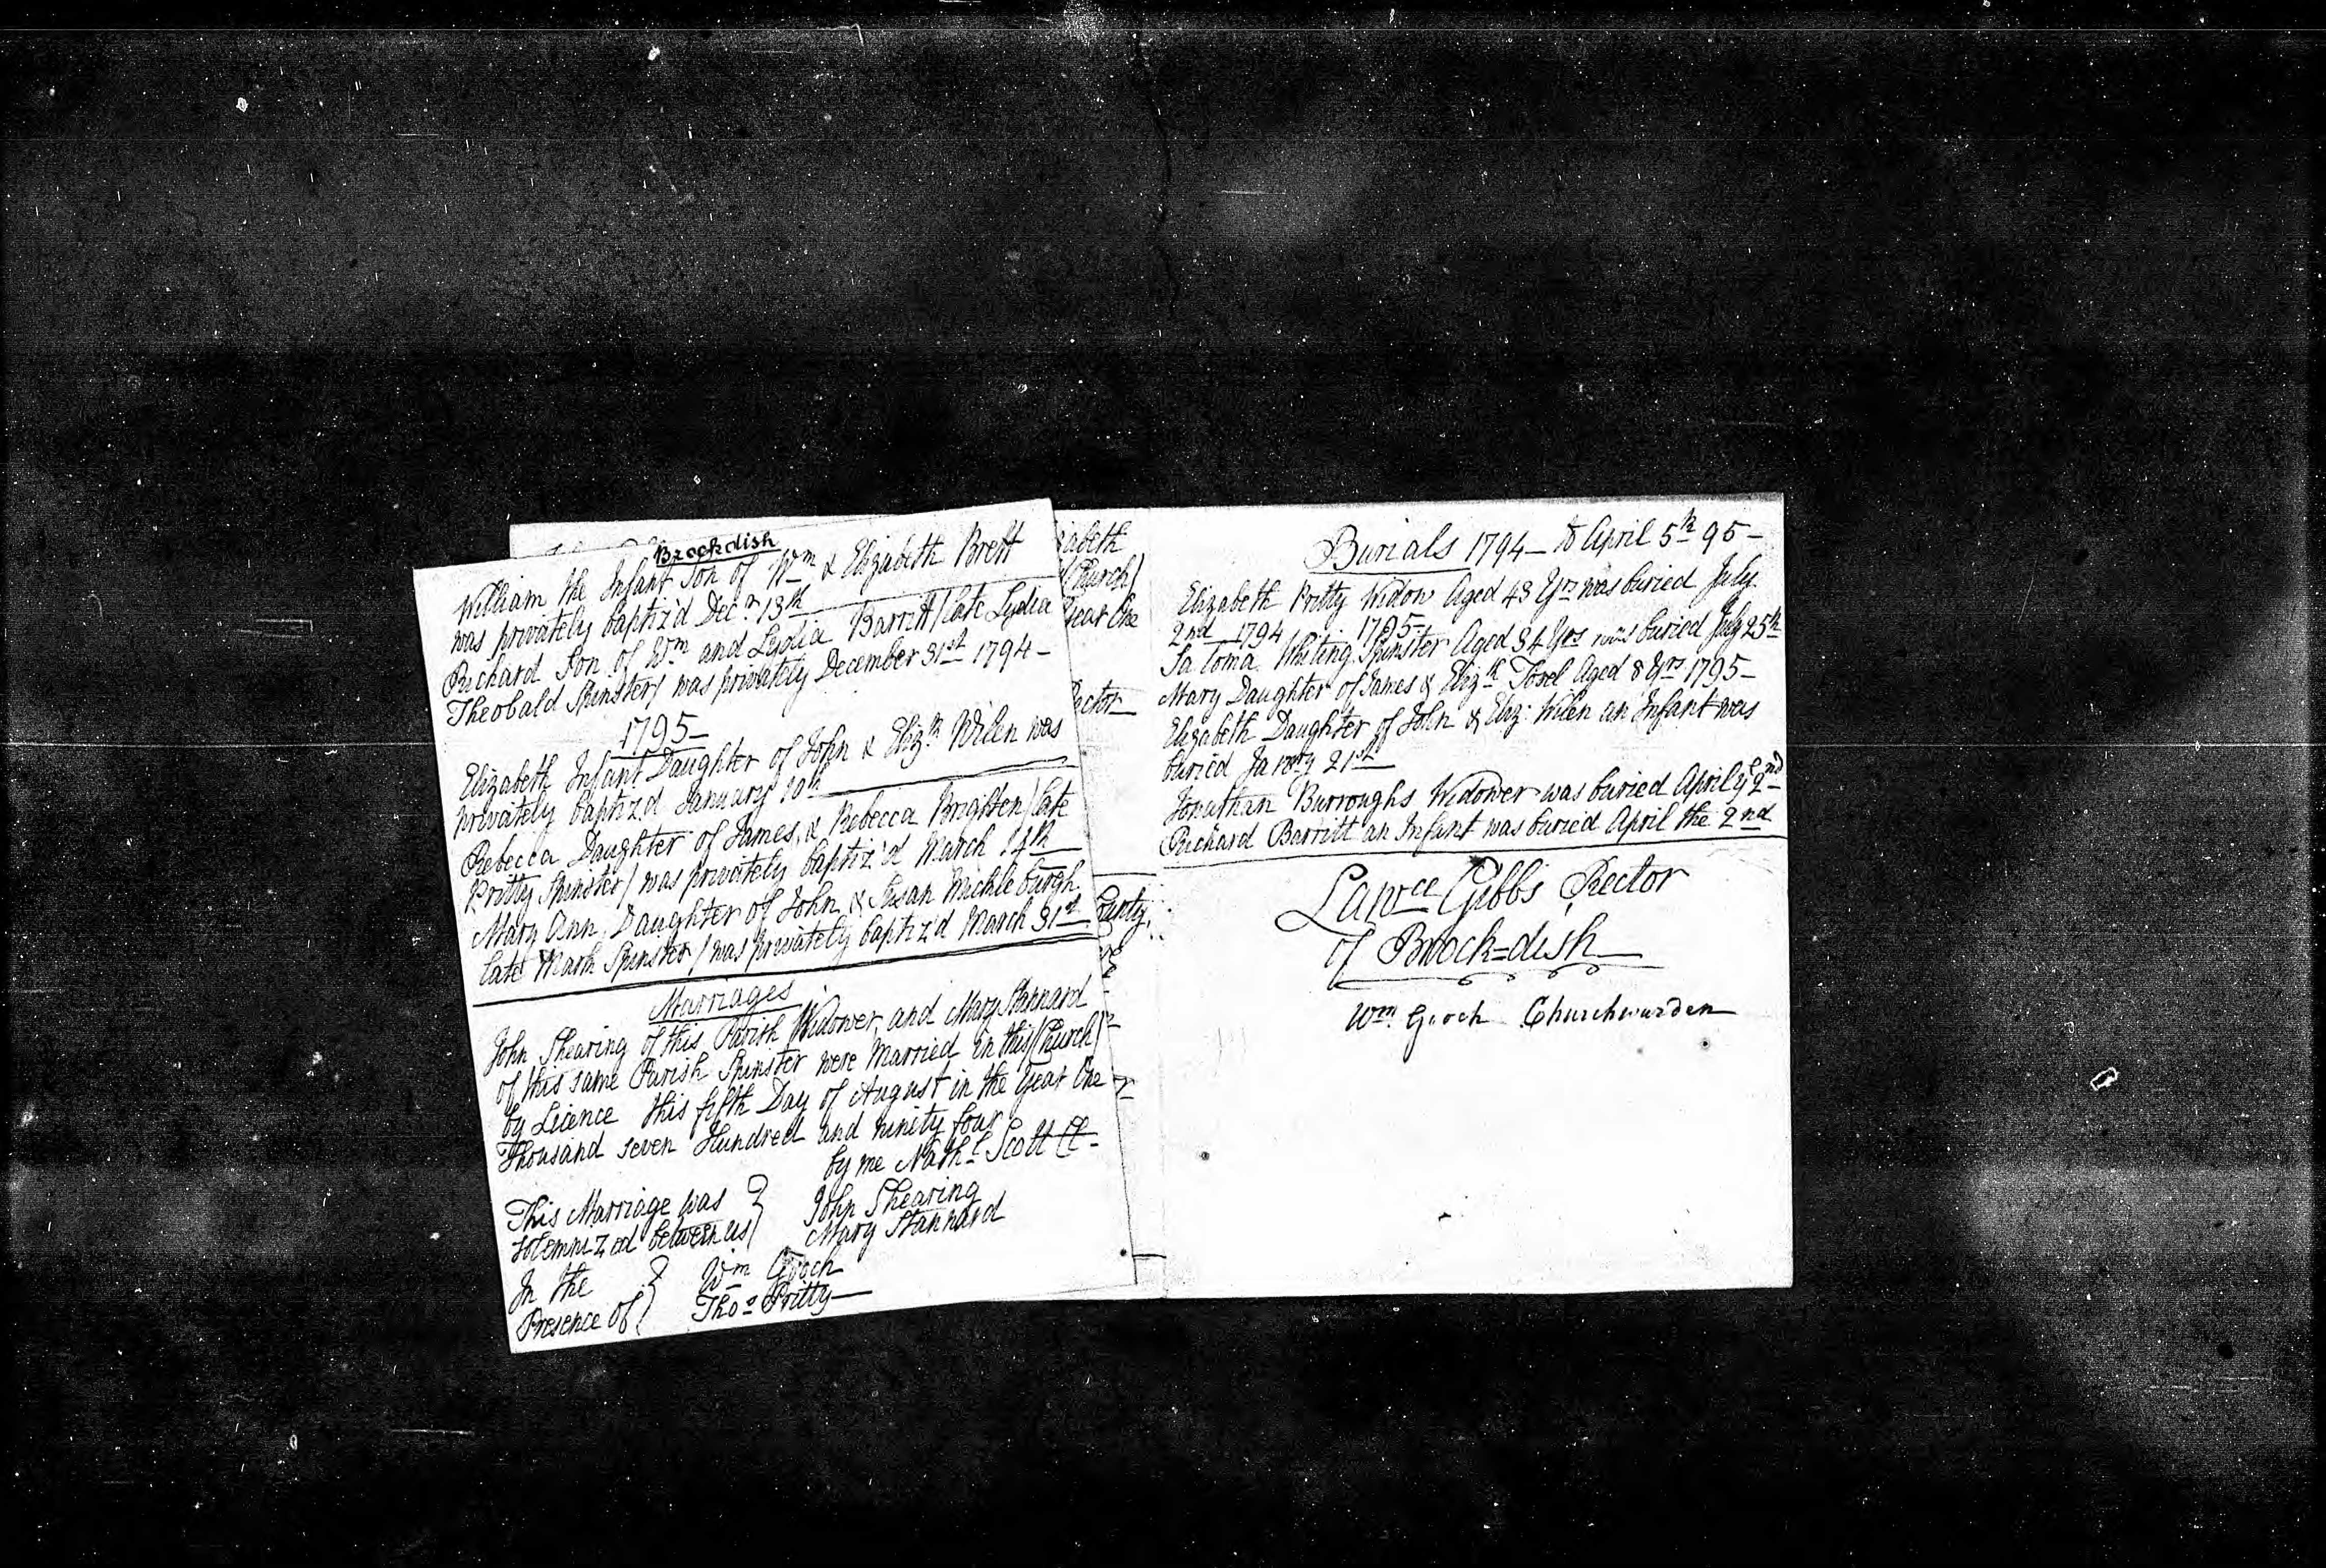 Brockdish
William the Infant Son of Wm & Elizabeth Brett
was privately baptiz'd Decr. 13th
Richard Son of Wm and Lydia Barritt/late Lydia
Theobald Spinster/ was privately December 31st 1794-
1795-
Elizabeth Infant Daughter of John & Elizth Wilen was
privately baptiz'd January 10th
Rebecca Daughter of James & Rebecca Brighten/late
Pritty Spinster/ was privately baptiz'd March 14th
Mary Ann Daughter of John & Susan Mickleburgh
late Spinster/ was privately baptiz'd March 31st
Marriages
John Shearing of this Parish Widower, and Mary Stannard
of this same Parish Spinster were Married in this (Church)
by Licence this fifth Day of August in the Year One
Thousand seven Hundred and ninity four
by me Nathl Scott Cl-
This Marriage was } John Shearing
solemnized between us } Mary Stannard
In the } Wm Gooch
Presence of } Thos Pritty
zabeth
(Church)
Year One
Rector
Burials 1794 - to April 5th 95 -
Elizabeth Pritty Widow Aged 43 Yrs was buried July
2nd 1794 1795-
Saloma Whiting Spinster Aged 34 Yrs was buried July 25th
Mary Daughter of James & Elizth Tosel Aged 8 Yrs 1795-
Elizabeth Daughter of John & Eliz: Wilen an Infant was
buried Janry 21st
Jonathan Burroughs Widower was buried April ye 2nd
Richard Barritt an Infant was buried April the 2nd
Lawce Gibbs Rector
of Brock=dish
Wm Gooch Churchwarden